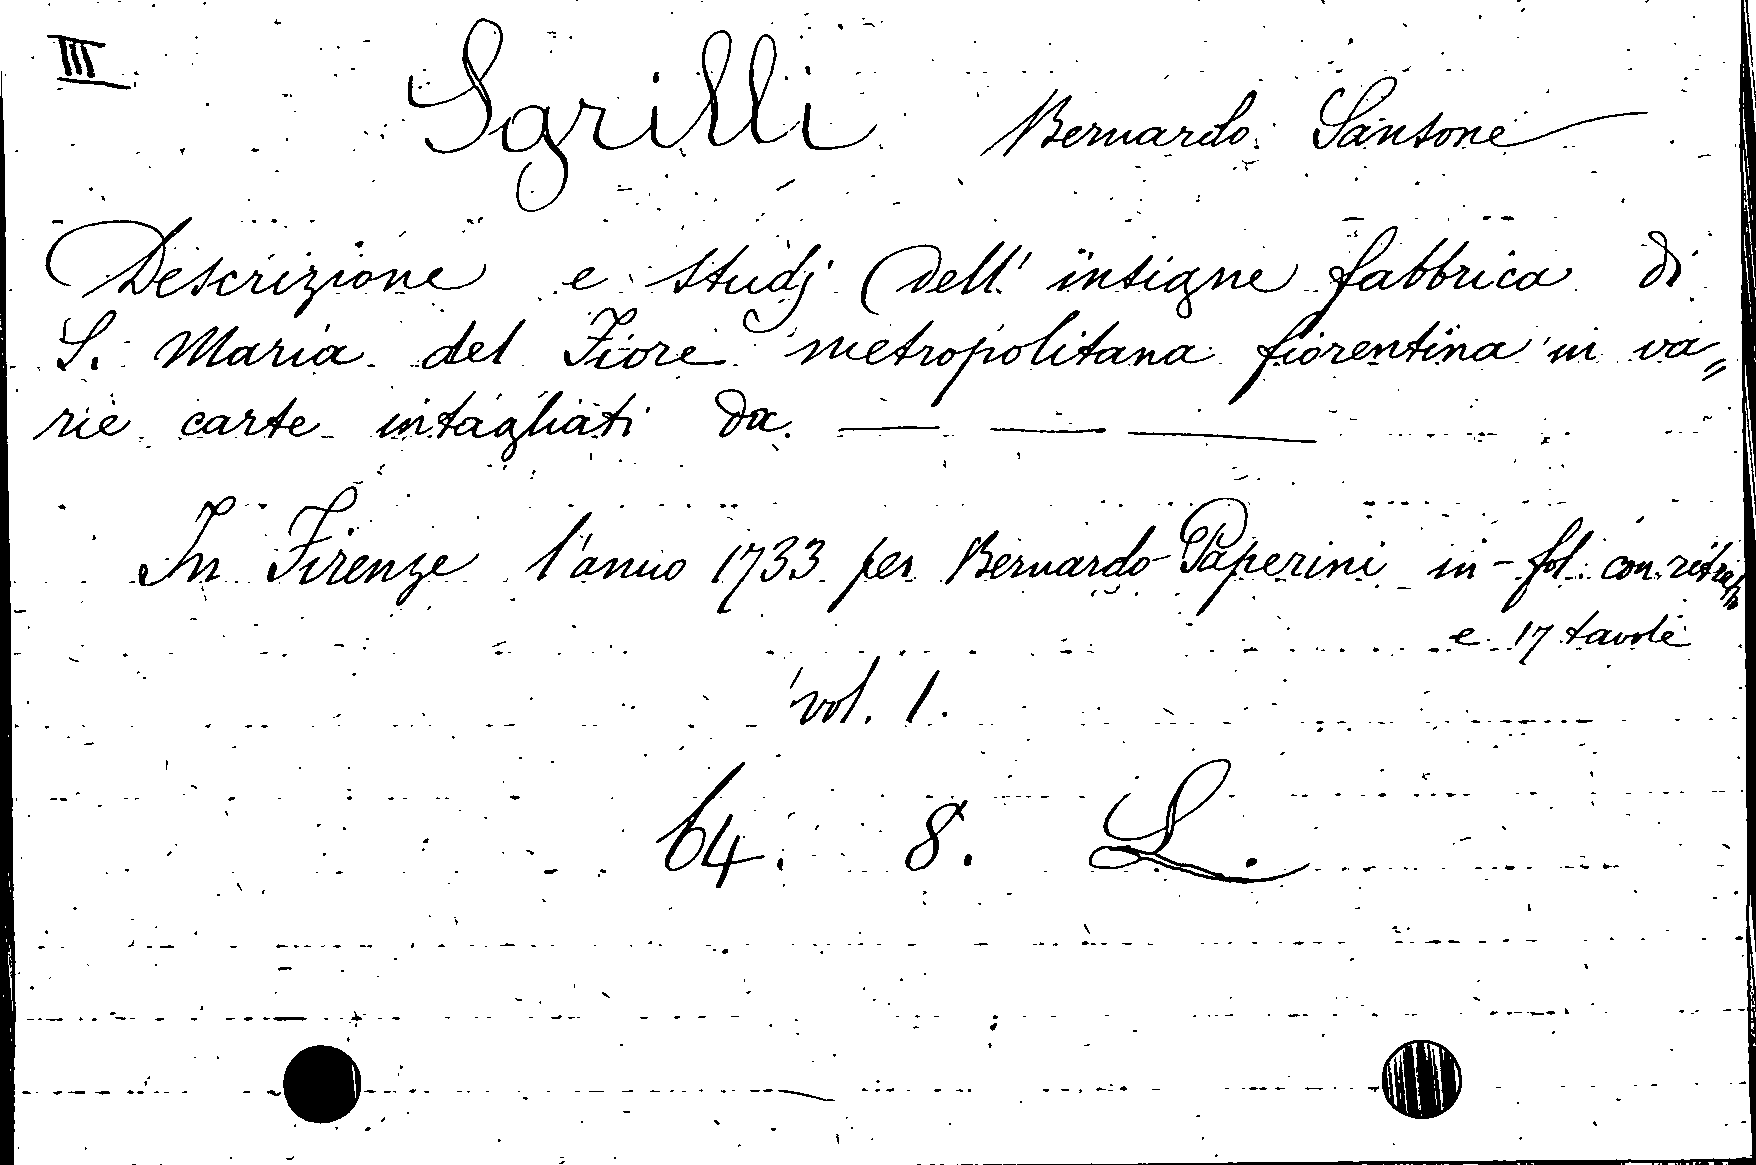 III
Sgrilli Bernardo Sansone
Descrizione e studj dell' insigne fabbrica di
S. Maria del Fiore metropolitana fiorentina in va„
rie carte intagliati da. — — —
In Firenze l'anno 1733 per Bernardo Paperini in-fol. con ritra„
e 17 tavole
vol. 1.
64. 8. L.